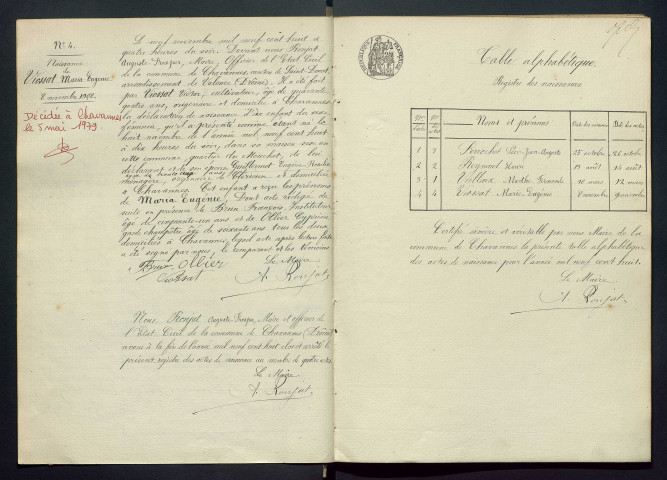 N° 4.
Naissance
de
Viossat Maria Eugénie
8 novembre 1908
Décédée à Chavannes
le 5 mai 1979
Le neuf novembre mil neuf cent huit à
quatre heures du soir. Devant nous Ronjat
Auguste Prosper, Maire, Officier de l'Etat Civil
de la commune de Chavannes, canton de Saint-Donat,
arrondissement de Valence (Drôme), il a été fait
par Viossat Victor, cultivateur, âgé de quarante
quatre ans, originaire et domicilié à Chavannes
la déclaration de naissance d'un enfant du sexe
féminin, qu'il a présenté comme étant né le
huit novembre de l'année mil neuf cent huit
à dix heures du soir, dans sa maison sise en
cette commune quartier du de lui
déclarant et de son épouse Guillermet Eugénie
ménagère, originaire de et domiciliée
à Chavannes. Cet enfant a reçu les prénoms
de Maria Eugénie. Dont acte rédigé de
suite en présence de Brun François, Instituteur
âgé de cinquante-six ans et de Ollier Cyprien
garde champêtre âgé de soixante ans tous les deux
domiciliés à Chavannes, lequel acte après lecture faite
a été signé par nous, le comparant et les témoins
Brun Ollier
Viossat
Le Maire
A. Ronjat
Nous, Ronjat Auguste Prosper, Maire et officier de
l'Etat Civil de la commune de Chavannes (Drôme)
avons à la fin de l'année mil neuf cent huit clos et arrêté le
présent registre des actes de naissance au nombre de quatre actes
Le Maire
A. Ronjat
RÉPUBLIQUE FRANÇAISE
Table alphabétique
Registre des naissances
Noms et prénoms
1 2 Pierre Jean Auguste 25 octobre 26 octobre
2 2 13 août 14 août
3 1 Marthe Fernande 10 mars 12 mars
4 4 Viossat Marie Eugénie 8 novembre 9 novembre
Certifié sincère et véritable par nous Maire de la
commune de Chavannes la présente table alphabétique
des actes de naissance pour l'année mil neuf cent huit.
Le Maire
A. Ronjat